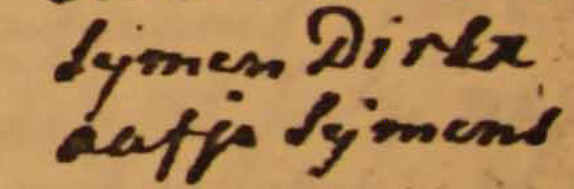 Sijmen Dirkx
aafje Sijmens